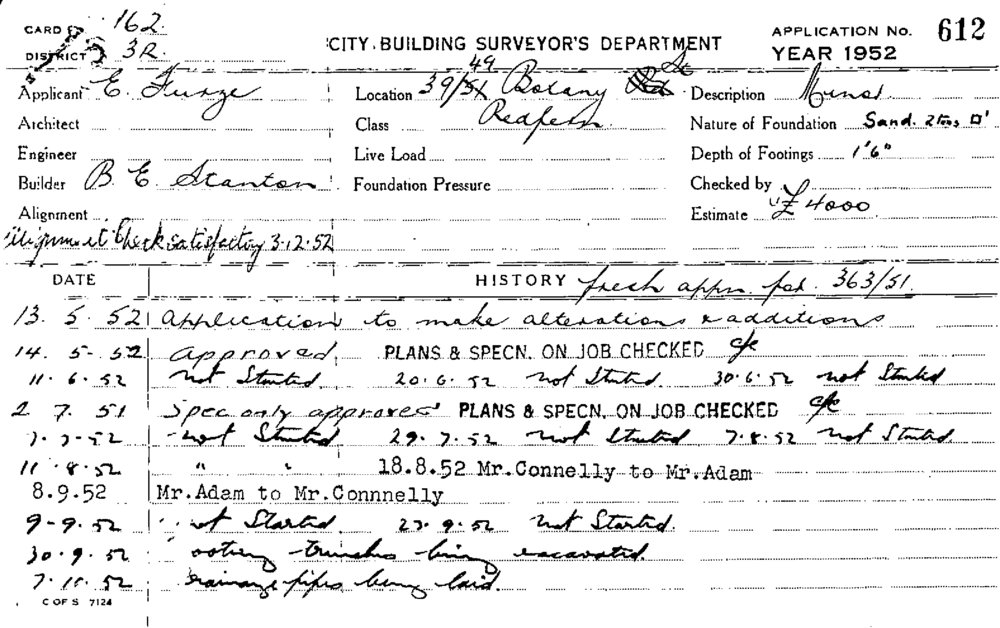 CARD 162.
DISTRICT 3R.
CITY BUILDING SURVEYOR'S DEPARTMENT
APPLICATION No. 612
YEAR 1952
Applicant E. Furze
Location 39/51 49 Botany Rd St
Description
Architect
Class Redfern.
Nature of Foundation Sand. 2 tons □'
Engineer
Live Load
Depth of Footings 1'6"
Builder B. E. Stanton
Foundation Pressure
Checked by
Alignment
Estimate £4000
Alignment Check satisfactory 3.12.52
DATE HISTORY fresh appn for. 363/51.
13. 5. 52 Application to make alterations & additions
14. 5. 52 Approved. PLANS & SPECN. ON JOB CHECKED
11. 6. 52 Not Started. 20. 6. 52 Not Started. 30. 6. 52 Not Started
2. 7. 51 Spec only approved PLANS & SPECN. ON JOB CHECKED
7. 7. 52 Not Started 29. 7. 52 Not Started 7. 8. 52 Not Started
11. 8. 52 " " 18.8.52 Mr.Connelly to Mr.Adam
8.9.52 Mr.Adam to Mr.Connnelly
9. 9. 52 ot Started. 23. 9. 52 Not Started.
30. 9. 52 ooting trenches being excavated.
7. 10. 52 rainage pipes being laid.
C OF S 7124